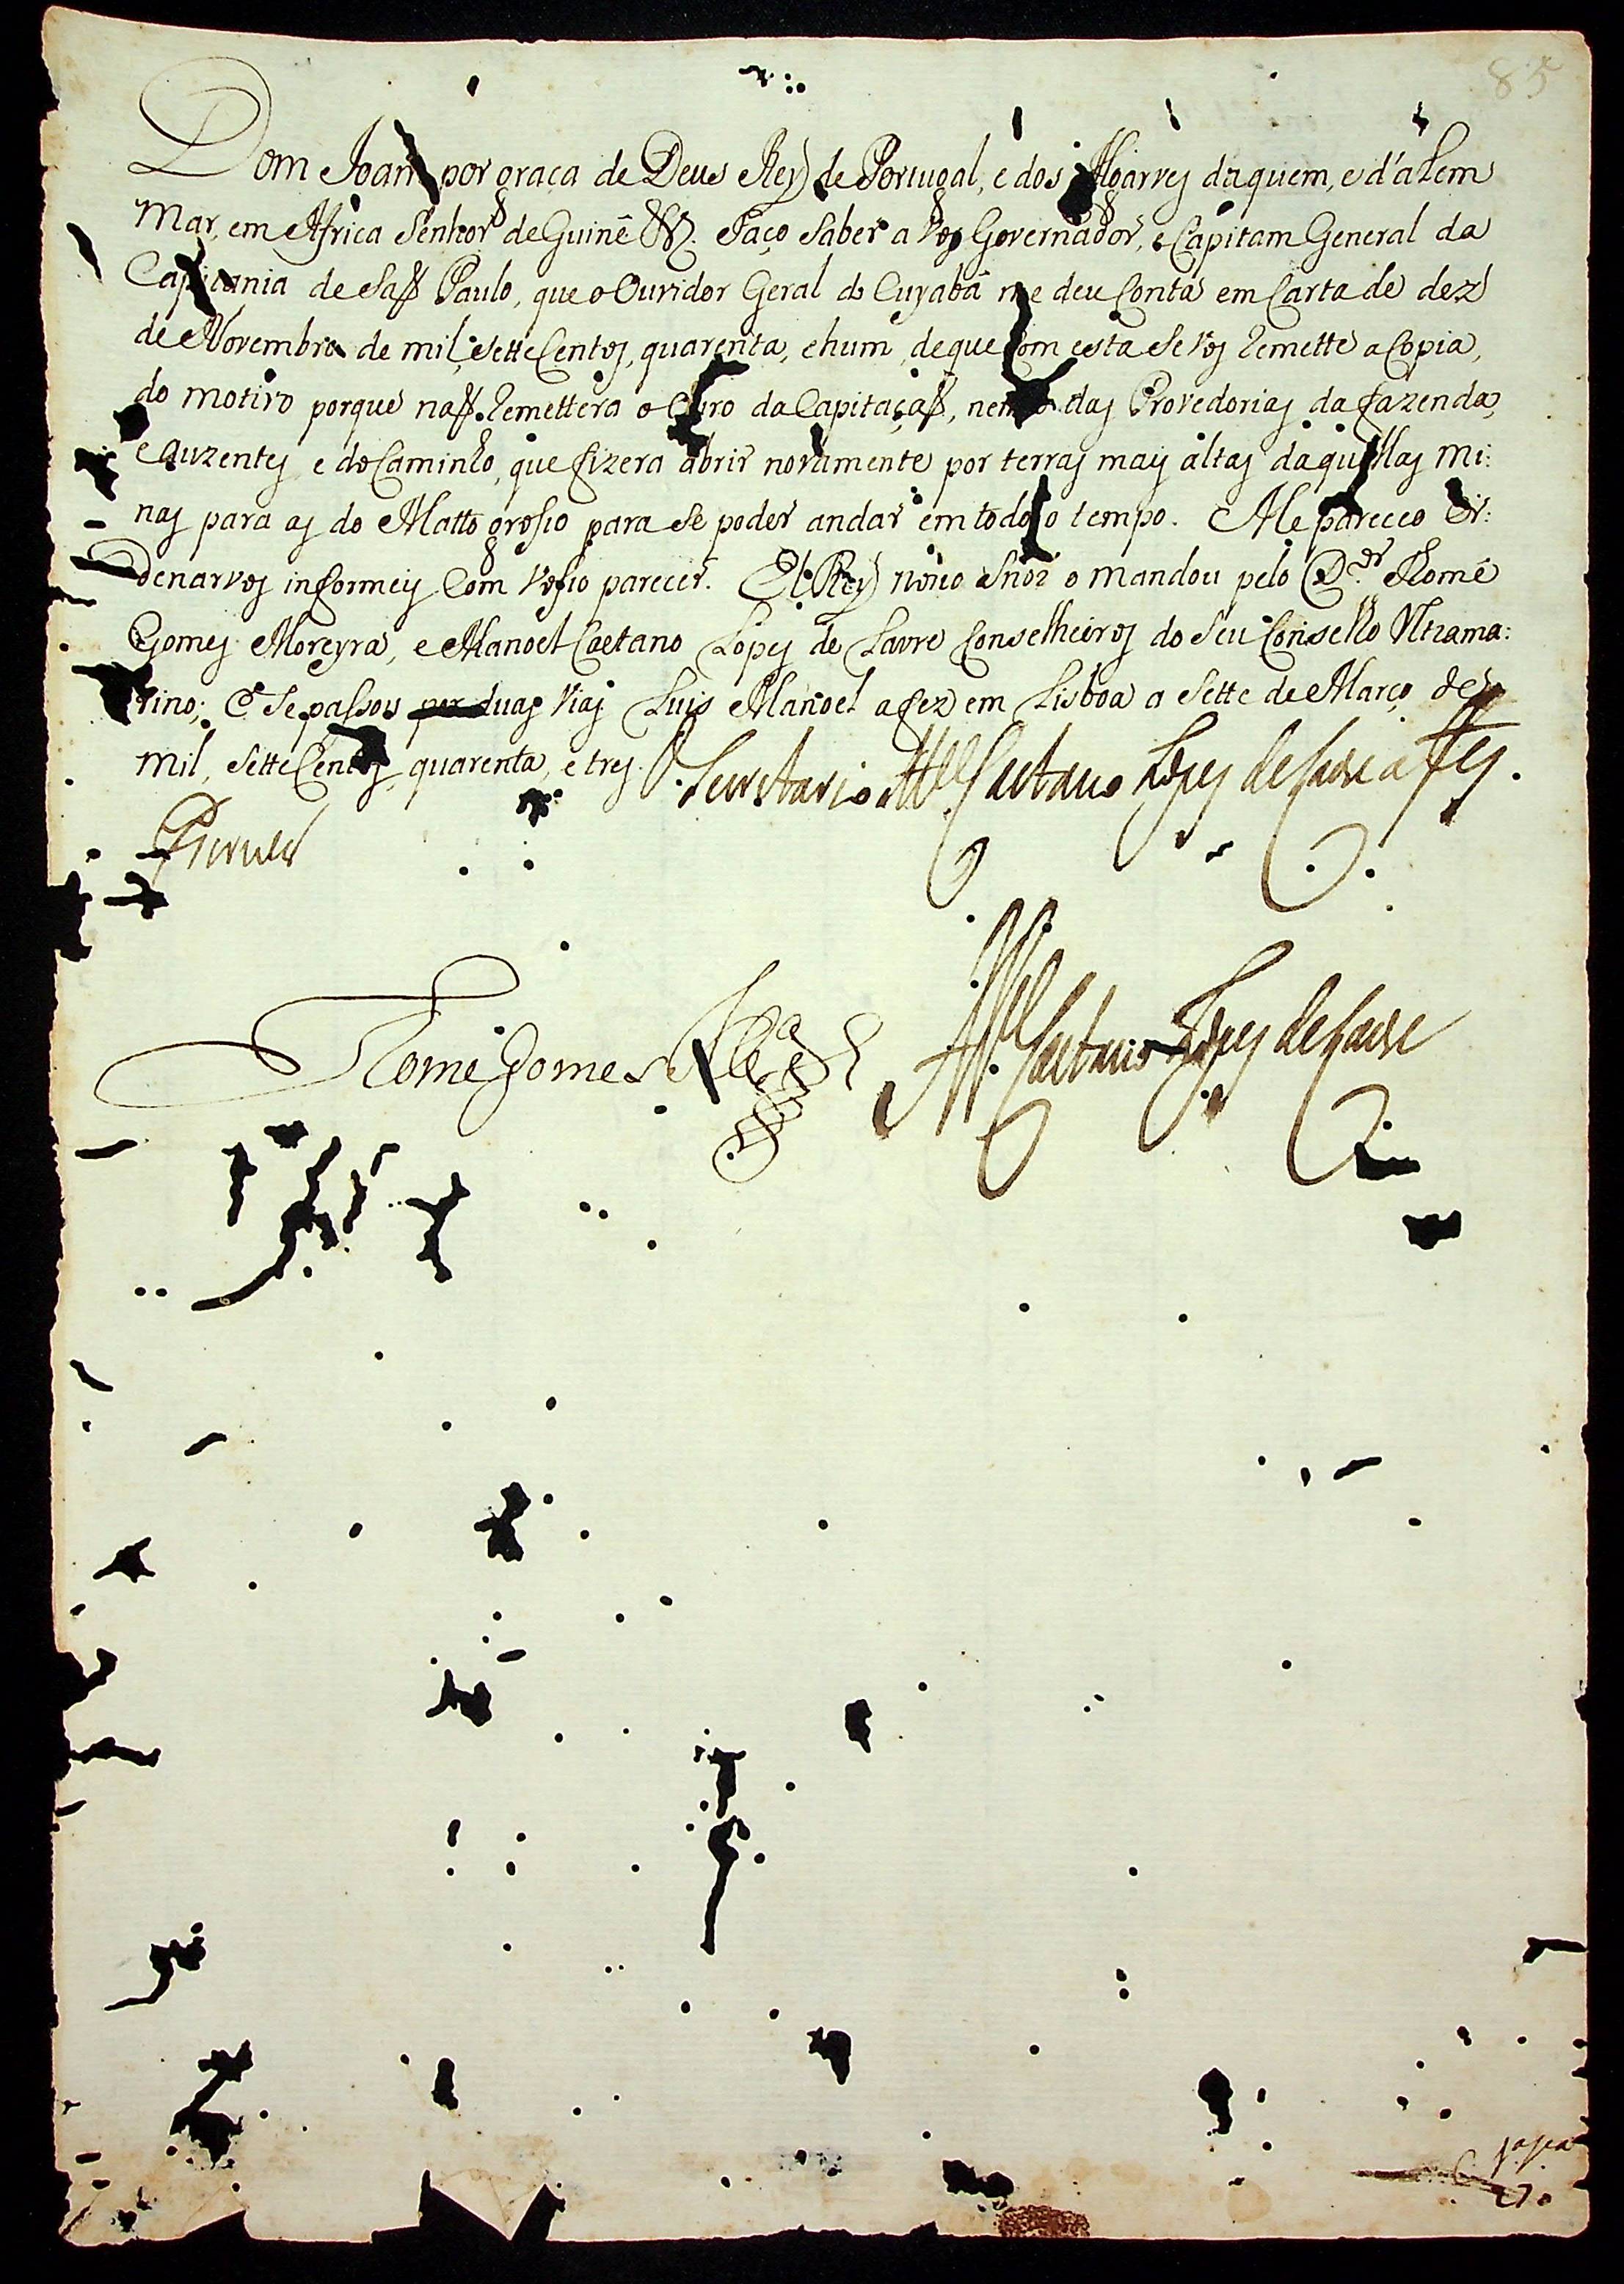 85
Dom Joam por graça de Deus Rey de Portugal, e dos Algarves daquem, e d'alem
Mar, em Africa Senhor de Guinê &. Faço saber a vos Governador, e Capitam General da
Capitania de Saõ Paulo, que o Ouvidor Geral do Cuyabâ me deu conta em carta de dez
de Novembro de mil, sette centos, quarenta, e hum, de que com esta se vos remette a copia,
do motivo porque naõ remettera o Ouro da Capitaçaõ, nem o das Provedorias da fazenda,
e auzentes e do Caminho, que fizera abrir novamente por terras mais altas daquellas Mi:
nas para as do Matto grosso para se poder andar em todo o tempo. Me pareceo Or:
denarvos informeis com vosso parecer. El Rey nosso Snõr o mandou pelo D.or Thomé
Gomes Moreyra, e Manoel Caetano Lopes de Lavre Conselheiros do seu Conselho Ultrama:
rino; e se passou por duas vias Luis Manoel a fez em Lisboa a sette de Março de
mil, sette centos, quarenta, e tres. O Secretario M.el Caetano Lopes de Lavre a fes.
Thome Gomes Mor.a
M.el Caetano Lopes de Lavre